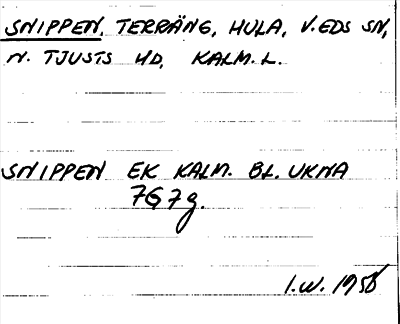 SNIPPEN, TERRÄNG, HULA, V. EDS SN,
N. TJUSTS HD, KALM. L.
SNIPPEN EK KALM. BL. UKNA
7G7g.
I.W. 1956